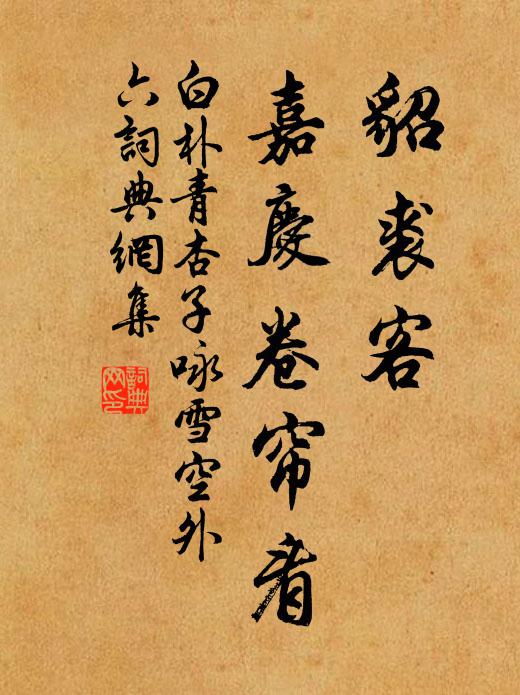 貂裘客
嘉慶卷帘看
白朴青杏子咏雪空外
六詞典網集
詞典網印